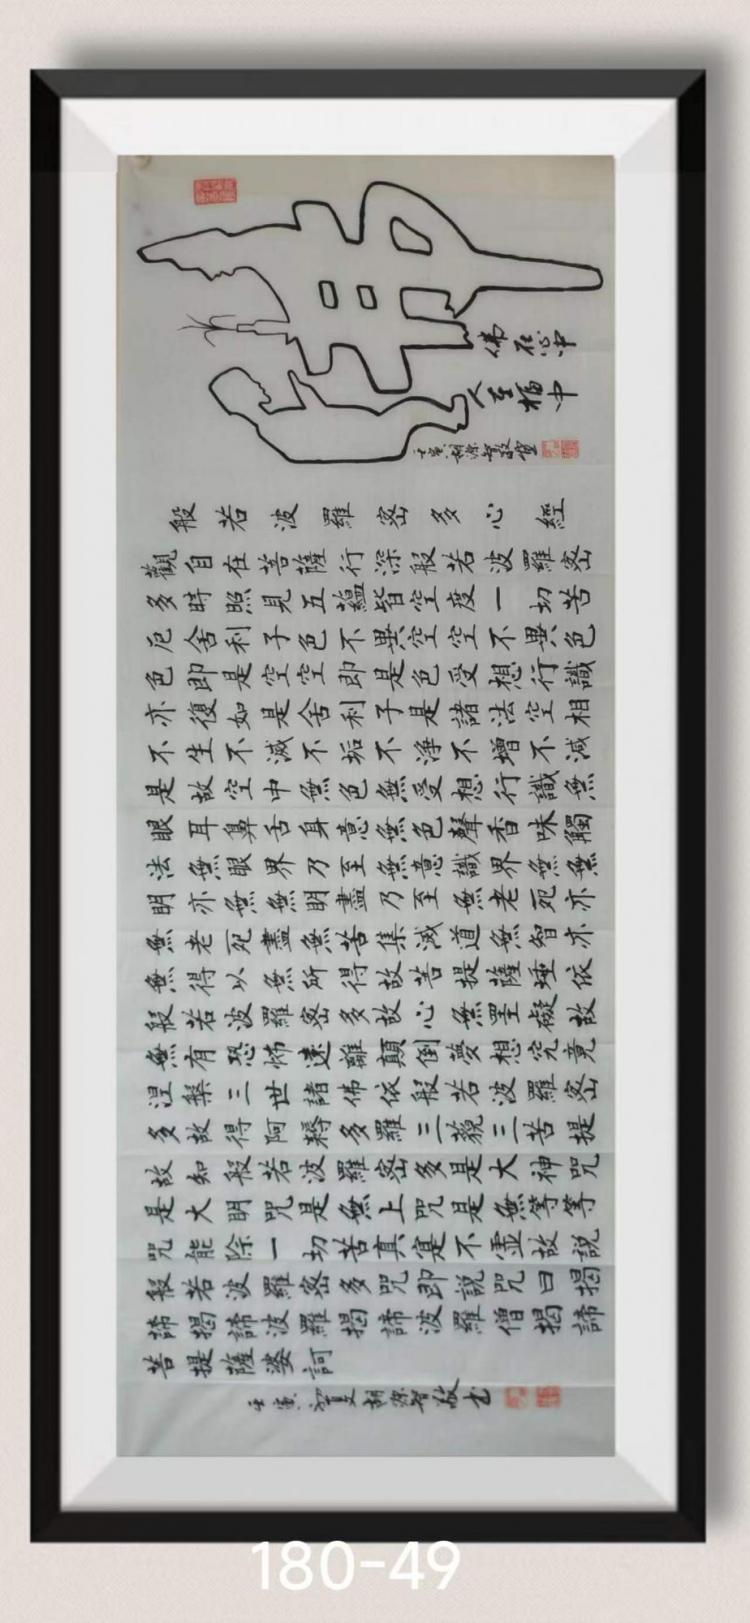 佛在心中
人在福中
壬寅胡源智敬寫
般若波羅密多心經
觀自在菩薩行深般若波羅密
多時照見五蘊皆空度一切苦
厄舍利子色不異空空不異色
色即是空空即是色受想行識
亦復如是舍利子是諸法空相
不生不滅不垢不淨不增不減
是故空中無色無受想行識無
眼耳鼻舌身意無色聲香味觸
法無眼界乃至無意識界無無
明亦無無明盡乃至無老死亦
無老死盡無苦集滅道無智亦
無得以無所得故菩提薩埵依
般若波羅密多故心無罣礙故
無有恐怖遠離顛倒夢想究竟
涅槃三世諸佛依般若波羅密
多故得阿耨多羅三藐三菩提
故知般若波羅密多是大神咒
是大明咒是無上咒是無等等
咒能除一切苦真寔不虛故說
般若波羅密多咒即說咒曰揭
諦揭諦波羅揭諦波羅僧揭諦
菩提薩婆訶
壬寅初夏胡源智敬書
180-49